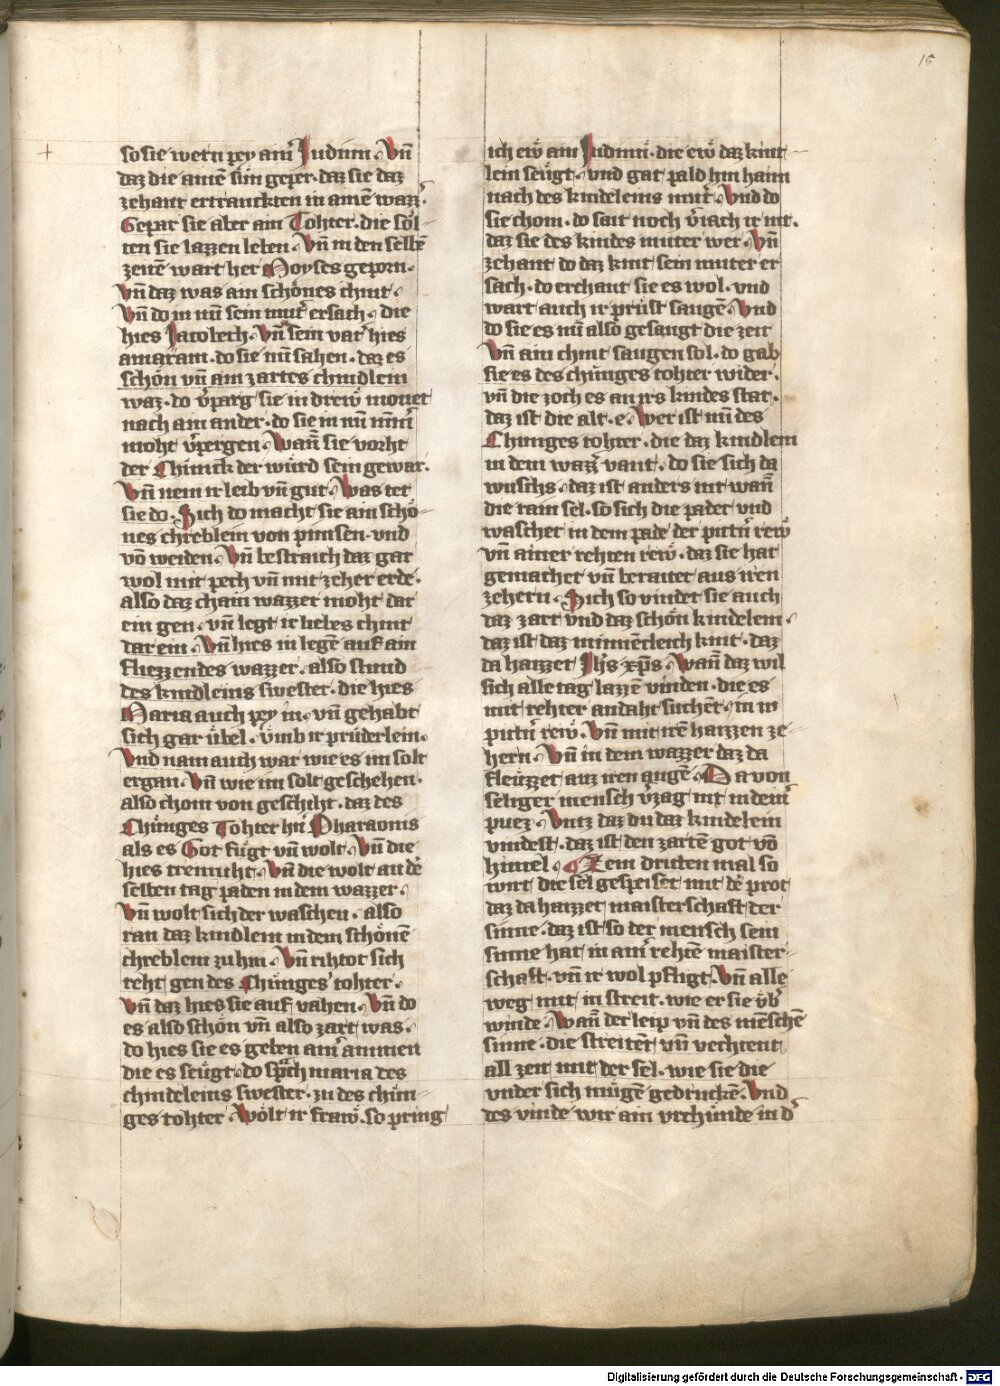 15
so sie wern pey ainr̄ Judinn. Vn̄
daz die ainē sün geper. daz sie daz
zehant ertranckten in ainē wazzr̄.
Gepar sie aber ain Tohter. die söl-
ten sie lazzen leben. Vn̄ in den selbē
zeitē wart her Moyses geporn.
Vn̄ daz was ain schönes chint.
Vn̄ do in nū sein mutr̄ ersach. die
hies Jacobech. Vn̄ sein vatr̄ hies
amaram. do sie nū sahen. daz es
schön vn̄ ain zartes chindlein
waz. do v̄parg sie in drew monet
nach ain ander. do sie in nū nimr̄
moht v̄pergen. Wan̄ sie vorht
der Chünick der würd sein gewar.
Vn̄ nem ir leib vn̄ gut. Was tet
sie do. Sich do macht sie ain schö-
nes chreblein von pimsen. vnd
vō weiden. Vn̄ bestraich daz gar
wol mit pech vn̄ mit zeher erde.
also daz chain wazzer moht dar
ein gen. vn̄ legt ir liebes chint
dar ein. Vn̄ hies in legē auf ain
fliezzendes wazzer. also stund
des kindleins swester. die hies
Maria auch pey in. vn̄ gehabt
sich gar übel. vmb ir prüderlein.
Vnd nam auch war wie es im solt
ergan. Vn̄ wie im solt geschehen.
also chom von geschiht. daz des
Chüniges Tohter hn̄ Pharaonis
als es Got fügt vn̄ wolt. Vn̄ die
hies tremuht. Vn̄ die wolt an dē
selben tag paden in dem wazzer.
Vn̄ wolt sich der waschen. also
ran daz kindlein in dem schönē
chreblein zu hin. Vn̄ rihtot sich
reht gen des Chüniges tohter.
Vn̄ daz hies sie auf vahen. Vn̄ do
es also schön vn̄ also zart was.
do hies sie es geben ainr̄ ammen
die es seugt. do sprach maria des
chindeleins swester. zu des chüni-
ges tohter. Wolt ir fraw. so pring
ich ew ain Judinn. die ew daz kint-
lein seugt. vnd gat pald hin haim
nach des kindeleins mutr̄. Vnd do
sie chom. do sait noch v̄iach ir nit.
daz sie des kindes muter wer. Vn̄
zehant do daz kint sein muter er
sach. do erchant sie es wol. vnd
wart auch ir prüst saugē. Vnd
do sie es nū also gesaugt die zeit
Vn̄ ain chint saugen sol. do gab
sie es des chüniges tohter wider.
vn̄ die zoch es an irs kindes stat.
daz ist die alt. e. Wer ist nū des
Chuniges tohter. die daz kindlein
in dem wazzr̄ vant. do sie sich da
wuschs. daz ist anders nit wan̄
die rain sel. so sich die padet vnd
waschet in dem pade der pittr̄n rew
vn̄ ainer rehten rew. daz sie hat
gemachet vn̄ beraitet aus iren
zehern. Sich so vindet sie auch
daz zart vnd daz schön kindelein.
daz ist daz minnēleich kint. daz
da haizzet Jhs xps. Wan̄ daz wil
sich alle tag lazzē vinden. die es
mit rehter andaht suchēt. in in
pittr̄n rew. Vn̄ mit irē haizzen ze-
hern. Vn̄ in dem wazzer daz da
fleuzzet auz iren augē. Da von
seliger mensch v̄zag nit in deinr̄
puez. Vntz daz du daz kindelein
vindest. daz ist den zartē got vō
himel. Zem dritten mal so
wirt die sel gespeiset mit dē prot
daz da haizzet maisterschaft der
sinne. daz ist so der mensch sein
sinne hat in ainr̄ rehtē maister-
schaft. vn̄ ir wol pfligt. Vn̄ alle
weg mit in streit. wie er sie v̄b
winde. Wan̄ der leip vn̄ des mēschē
sinne. die streitēt vn̄ vechtent
all zeit mit der sel. wie sie die
vnder sich mügē gedrückē. Vnd
des vinde wir ain vrchünde in dr̄
Digitalisierung gefördert durch die Deutsche Forschungsgemeinschaft - DFG